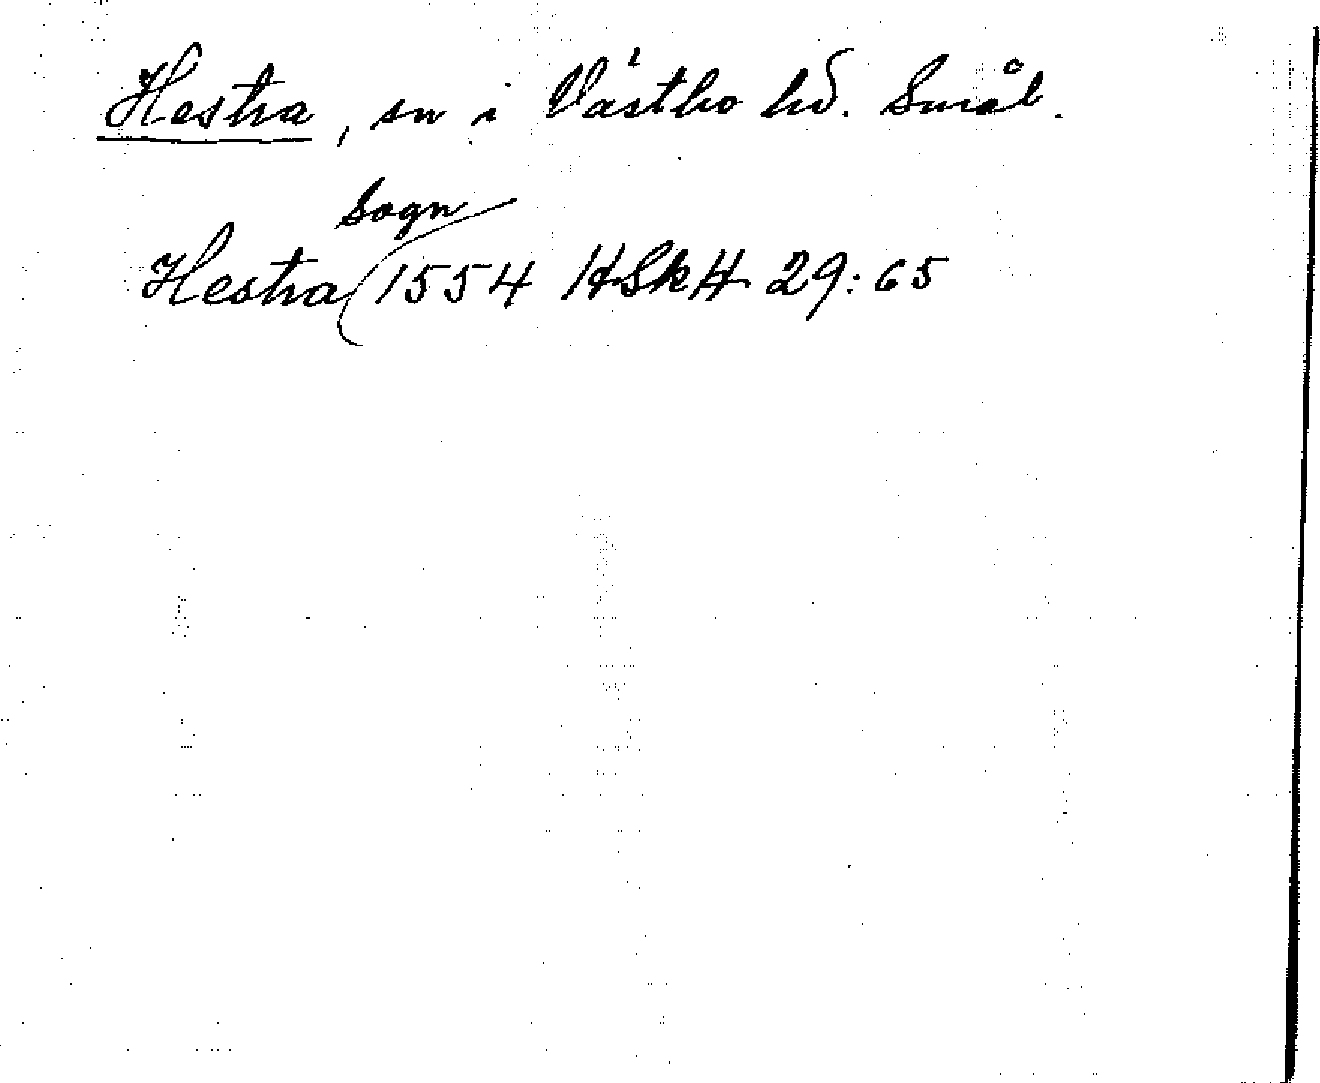 Hestra, sn i Västbo hd. Smål.
Sogn
Hestra 1554 HSkH 29:65